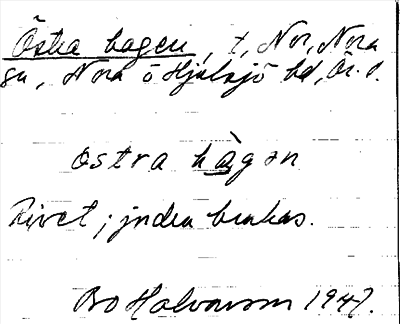 Östra hagen, t, Nor, Nora
sn, Nora o Hjulsjö bd, Ör. l.
ostra hàgen
Rivet; jorden brukas.
Bo Halvarson 1947.